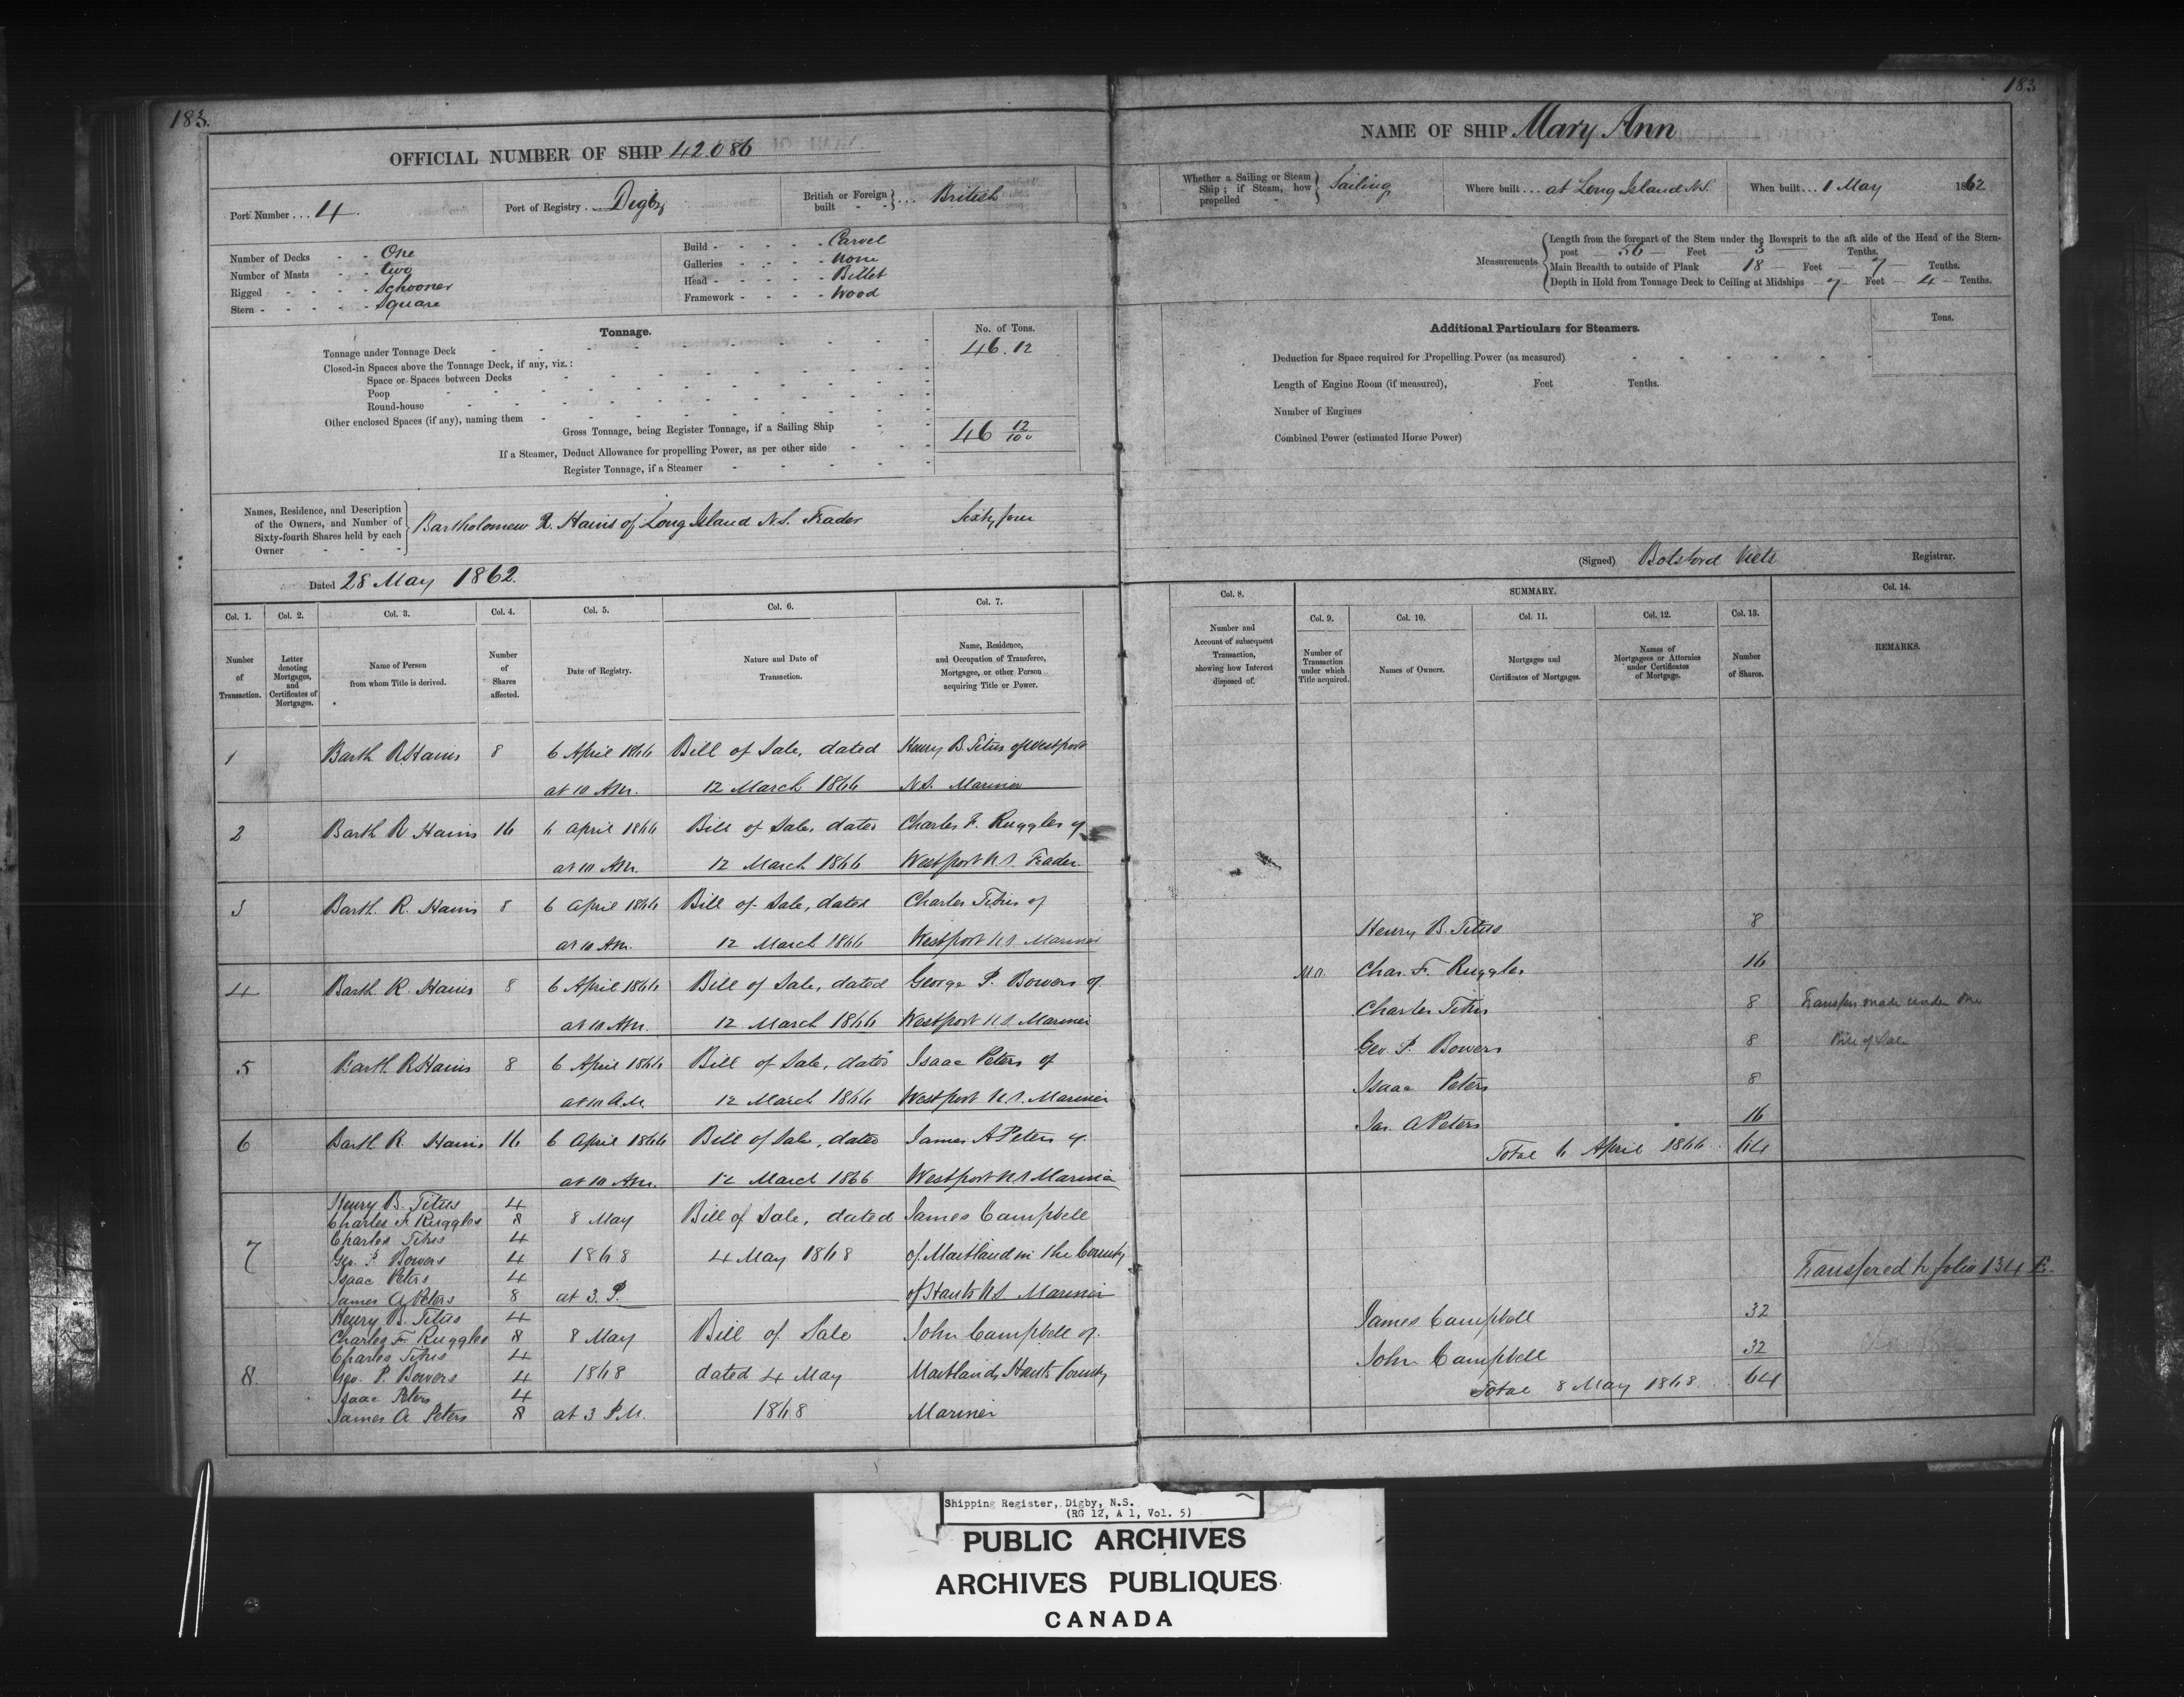 183.
OFFICIAL NUMBER OF SHIP 42.086
Port Number ... 4.
Port of Registry ... Digby
British or Foreign built - - } ... British
Number of Decks - - One
Number of Masts - - two
Rigged - - - - Schooner
Stern - - - - - Square
Build - - - - - Carvel
Galleries - - - - none
Head - - - - - Billet
Framework - - - - Wood
Tonnage.
No. of Tons.
Tonnage under Tonnage Deck 46.12
Closed-in Spaces above the Tonnage Deck, if any, viz.:
Space or Spaces between Decks
Poop
Round-house
Other enclosed Spaces (if any), naming them
Gross Tonnage, being Register Tonnage, if a Sailing Ship 46 12/100
If a Steamer, Deduct Allowance for propelling Power, as per other side
Register Tonnage, if a Steamer
Names, Residence, and Description
of the Owners, and Number of
Sixty-fourth Shares held by each
Owner - - -
Bartholomew R. Hains of Long Island N.S. Trader Sixty four
Dated 28 May 1862.
Col. 1. Col. 2. Col. 3. Col. 4. Col. 5. Col. 6. Col. 7.
Number of Transaction.
Letter denoting Mortgages, and Certificates of Mortgages.
Name of Person from whom Title is derived.
Number of Shares affected.
Date of Registry.
Nature and Date of Transaction.
Name, Residence, and Occupation of Transferee, Mortgagee, or other Person acquiring Title or Power.
1 Barth R Hains 8 6 April 1866 Bill of Sale, dated Henry B. Titus of Westport
at 10 AM. 12 March 1866 N.S. Mariner
2 Barth R Hains 16 6 April 1866 Bill of Sale, dated Charles F. Ruggles of
at 10 AM. 12 March 1866 Westport N.S. Trader
3 Barth. R. Hains 8 6 April 1866 Bill of Sale, dated Charles Titus of
at 10 AM. 12 March 1866 Westport N.S. Mariner
4 Barth R. Hains 8 6 April 1866 Bill of Sale, dated George P. Bowers of
at 10 AM. 12 March 1866 Westport N.S. Mariner
5 Barth R Hains 8 6 April 1866 Bill of Sale, dated Isaac Peters of
at 10 A.M. 12 March 1866 Westport N.S. Mariner
6 Barth R Hains 16 6 April 1866 Bill of Sale, dated James A Peters of
at 10 AM. 12 March 1866 Westport N.S Mariner
Henry B. Titus 4
Charles F. Ruggles 8 8 May Bill of Sale, dated James Campbell
Charles Titus 4
7 Geo. P Bowers 4 1868 4 May 1868 of Maitland in the County
Isaac Peters 4
James A Peters 8 at 3. P. of Hants N.S Mariner
Henry B. Titus 4
Charles F. Ruggles 8 8 May Bill of Sale John Campbell of
Charles Titus 4
8. Geo. P Bowers 4 1868 dated 4 May Maitland, Hants County
Isaac Peters 4
James A Peters 8 at 3 P.M. 1868 Mariner
183
NAME OF SHIP Mary Ann
Whether a Sailing or Steam Ship; if Steam, how propelled - } Sailing
Where built ... at Long Island N.S.
When built ... 1 May 1862
Measurements
Length from the forepart of the Stem under the Bowsprit to the aft side of the Head of the Stern-
post - 56 - Feet - 3 - Tenths.
Main Breadth to outside of Plank 18 - Feet - 7 - Tenths.
Depth in Hold from Tonnage Deck to Ceiling at Midships - 7 - Feet - 4 - Tenths.
Additional Particulars for Steamers.
Tons.
Deduction for Space required for Propelling Power (as measured)
Length of Engine Room (if measured), Feet Tenths.
Number of Engines
Combined Power (estimated Horse Power)
(Signed) Botsford Viets Registrar.
Col. 8. SUMMARY. Col. 14.
Col. 9. Col. 10. Col. 11. Col. 12. Col. 13.
Number and Account of subsequent Transaction, showing how Interest disposed of.
Number of Transaction under which Title acquired.
Names of Owners.
Mortgages and Certificates of Mortgages.
Names of Mortgagees or Attornies under Certificates of Mortgage.
Number of Shares.
REMARKS.
Henry B. Titus 8
Char. F. Ruggles 16
Charles Titus 8 Transfers made under one
Geo. P. Bowers 8 Bill of Sale
Isaac Peters 8
Jas. A Peters 16
Total 6 April 1866 .. 64
Transfered to folio 134
James Campbell 32
John Campbell 32
Total 8 May 1868 .. 64
Shipping Register, Digby, N.S.
(RG 12, A 1, Vol. 5)
PUBLIC ARCHIVES
ARCHIVES PUBLIQUES
CANADA